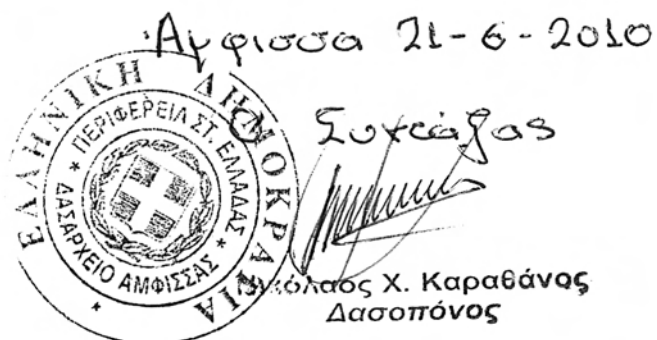 Άμφισσα 21-6-2010
Ο Συντάξας
ΕΛΛΗΝΙΚΗ ΔΗΜΟΚΡΑΤΙΑ
ΠΕΡΙΦΕΡΕΙΑ ΣΤ. ΕΛΛΑΔΑΣ
* ΔΑΣΑΡΧΕΙΟ ΑΜΦΙΣΣΑΣ *
Νικόλαος Χ. Καραθάνος
Δασοπόνος